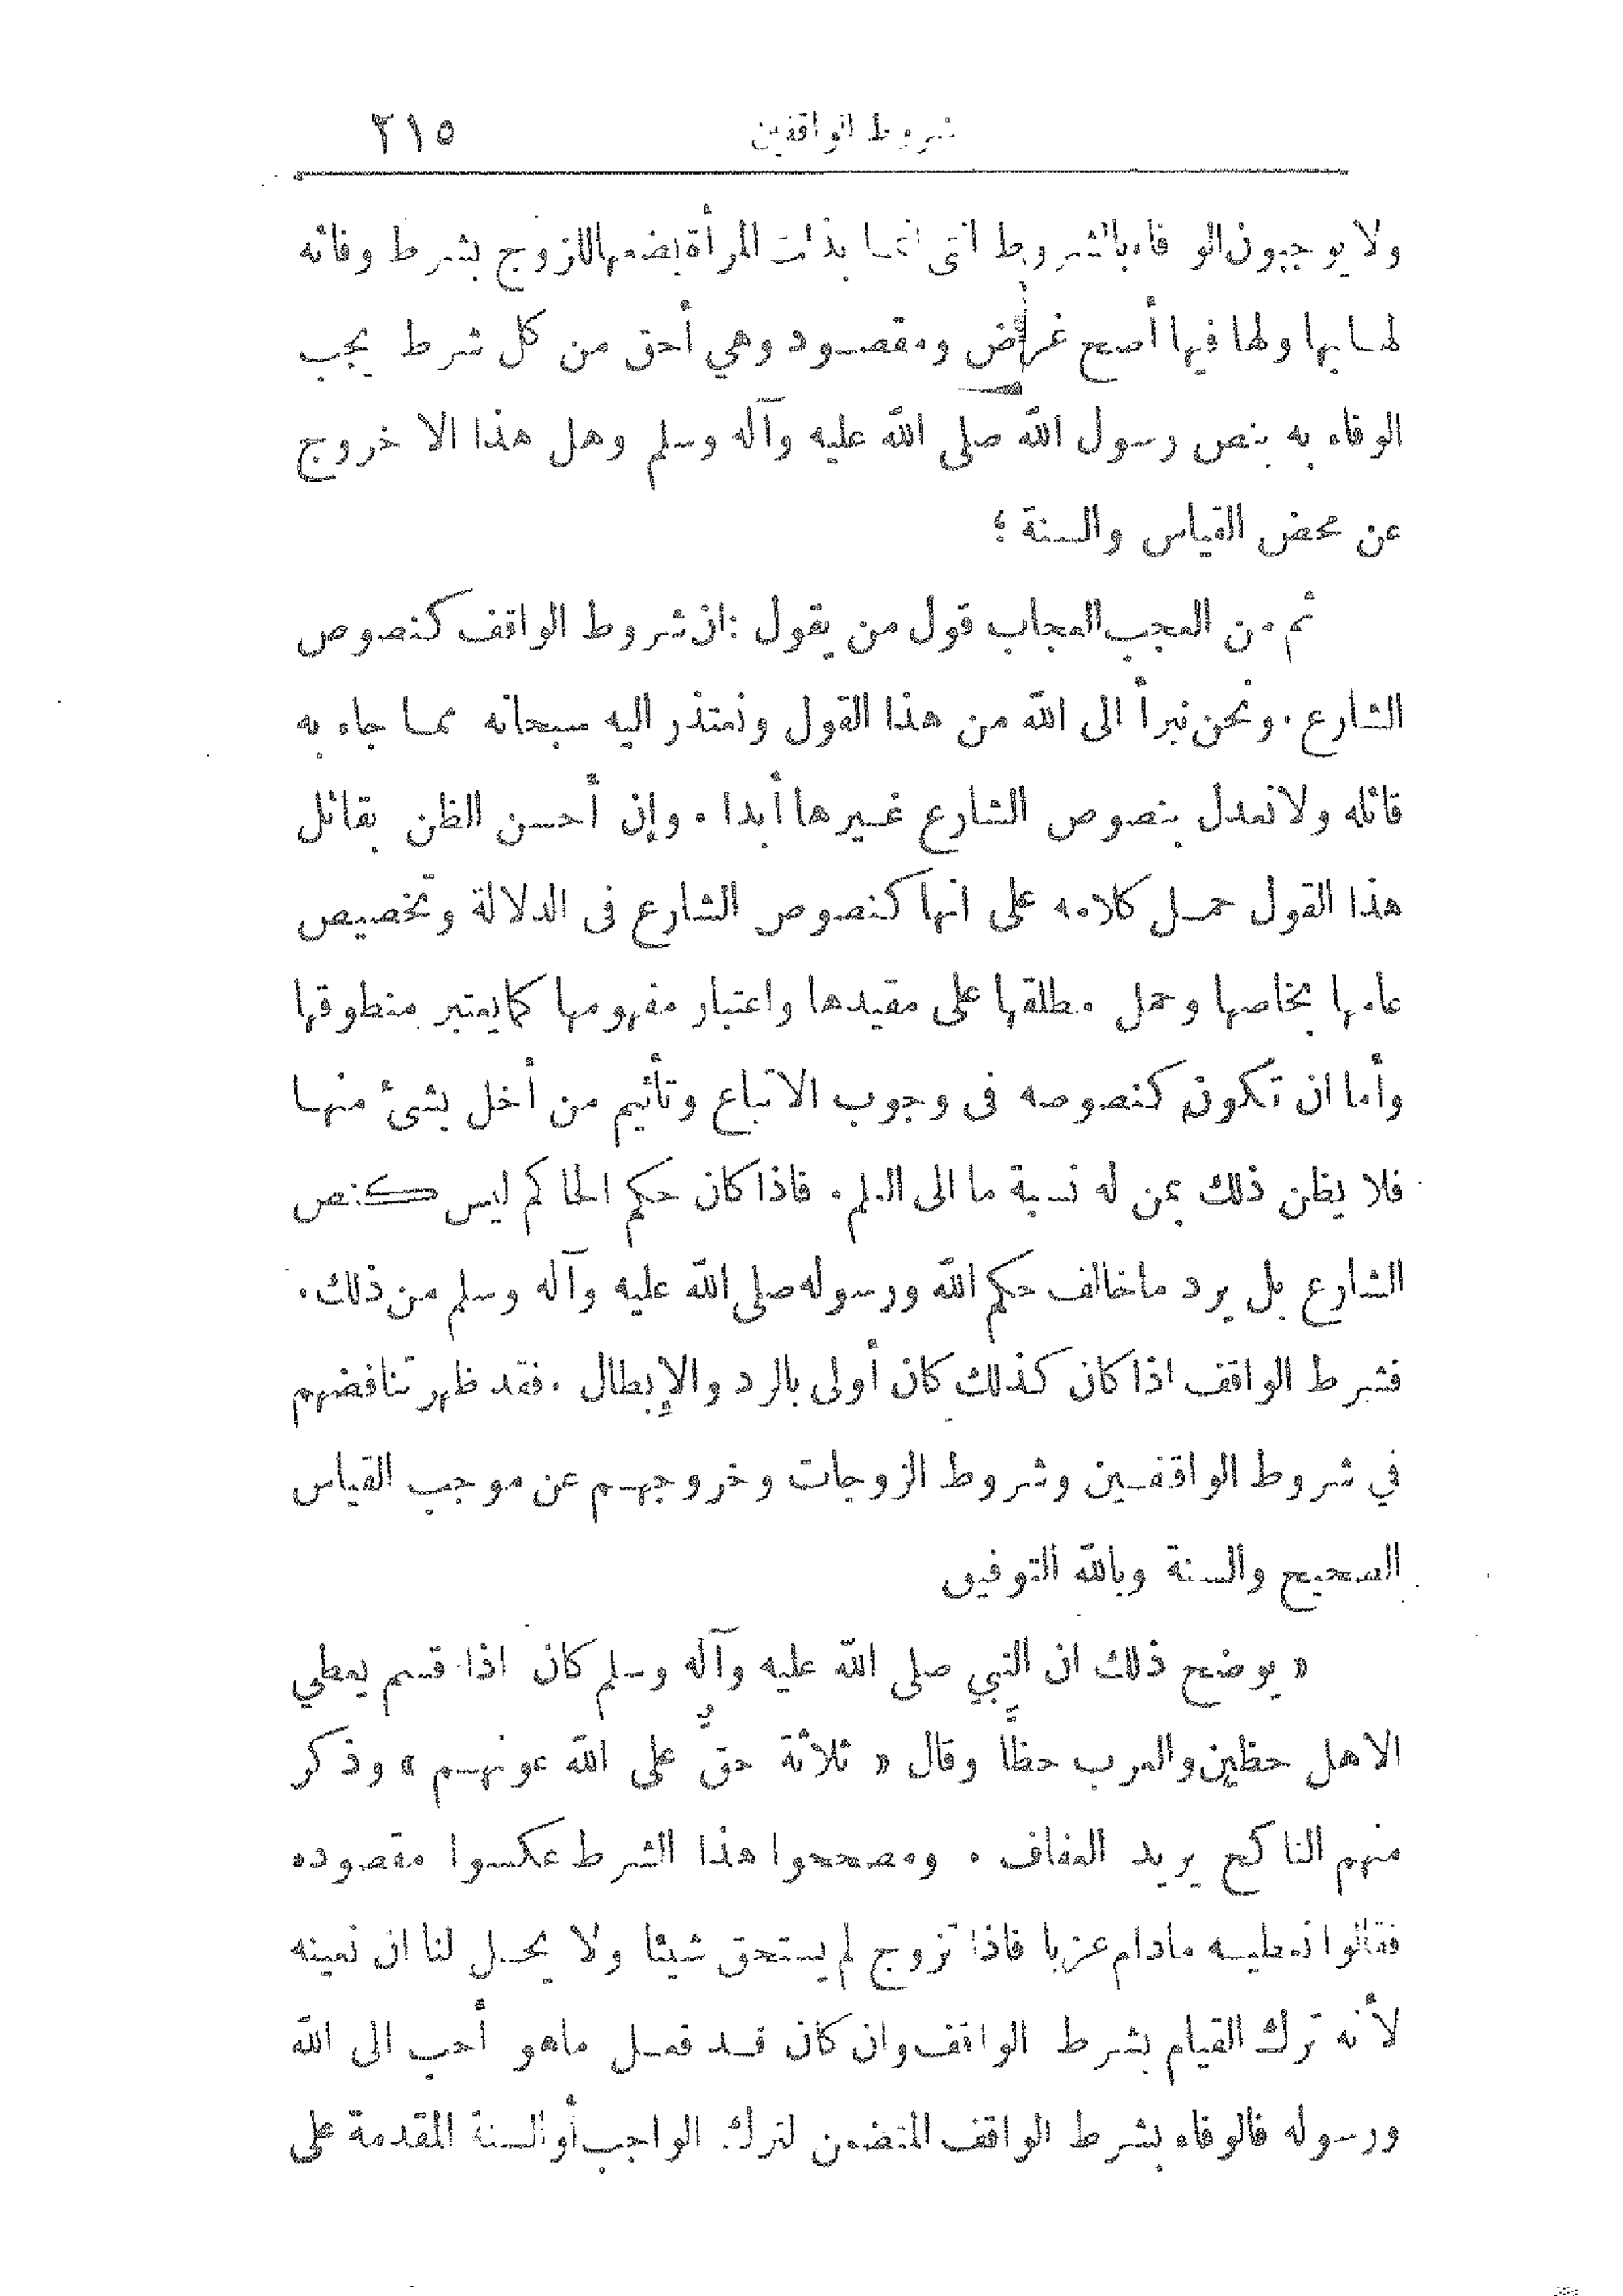 شروط الواقفين ٢١٥
ولا يوجبون الوفاء بالشروط التي انما بذلت المرأة بضعها للزوج بشرط وفائه
لها بها ولها فيها أصح غرض ومقصود وهي أحق من كل شرط يجب
الوفاء به بنص رسول الله صلى الله عليه وآله وسلم وهل هذا الا خروج
عن محض القياس والسنة ؟
ثم من العجب العجاب قول من يقول : ان شروط الواقف كنصوص
الشارع . ونحن نبرأ الى الله من هذا القول ونعتذر اليه سبحانه مما جاء به
قائله ولا نعدل بنصوص الشارع غيرها أبدا . وإن أحسن الظن بقائل
هذا القول حمل كلامه على انها كنصوص الشارع فى الدلالة وتخصيص
عامها بخاصها وحمل مطلقها على مقيدها واعتبار مفهومها كما يعتبر منطوقها
وأما ان تكون كنصوصه فى وجوب الاتباع وتأثيم من أخل بشئ منها
فلا يظن ذلك بمن له نسبة ما الى العلم . فاذا كان حكم الحاكم ليس كنص
الشارع بل يرد ما خالف حكم الله ورسوله صلى الله عليه وآله وسلم من ذلك .
فشرط الواقف اذا كان كذلك كان أولى بالرد والإبطال . فقد ظهر تنافضهم
في شروط الواقفين وشروط الزوجات وخروجهم عن موجب القياس
الصحيح والسنة وبالله التوفيق
« يوضح ذلك ان النبي صلى الله عليه وآله وسلم كان اذا قسم يعطي
الاهل حظين والعرب حظًّا وقال « ثلاثة حقٌّ على الله عونهم » وذكر
منهم الناكح يريد العفاف . ومصححوا هذا الشرط عكسوا مقصوده
فقالوا نعطيه مادام عزبا فاذا تزوج لم يستحق شيئا ولا يحل لنا ان نعينه
لأنه ترك القيام بشرط الواقف وان كان قد فعل ماهو أحب الى الله
ورسوله فالوفاء بشرط الواقف المتضمن لترك الواجب أو السنة المقدمة على